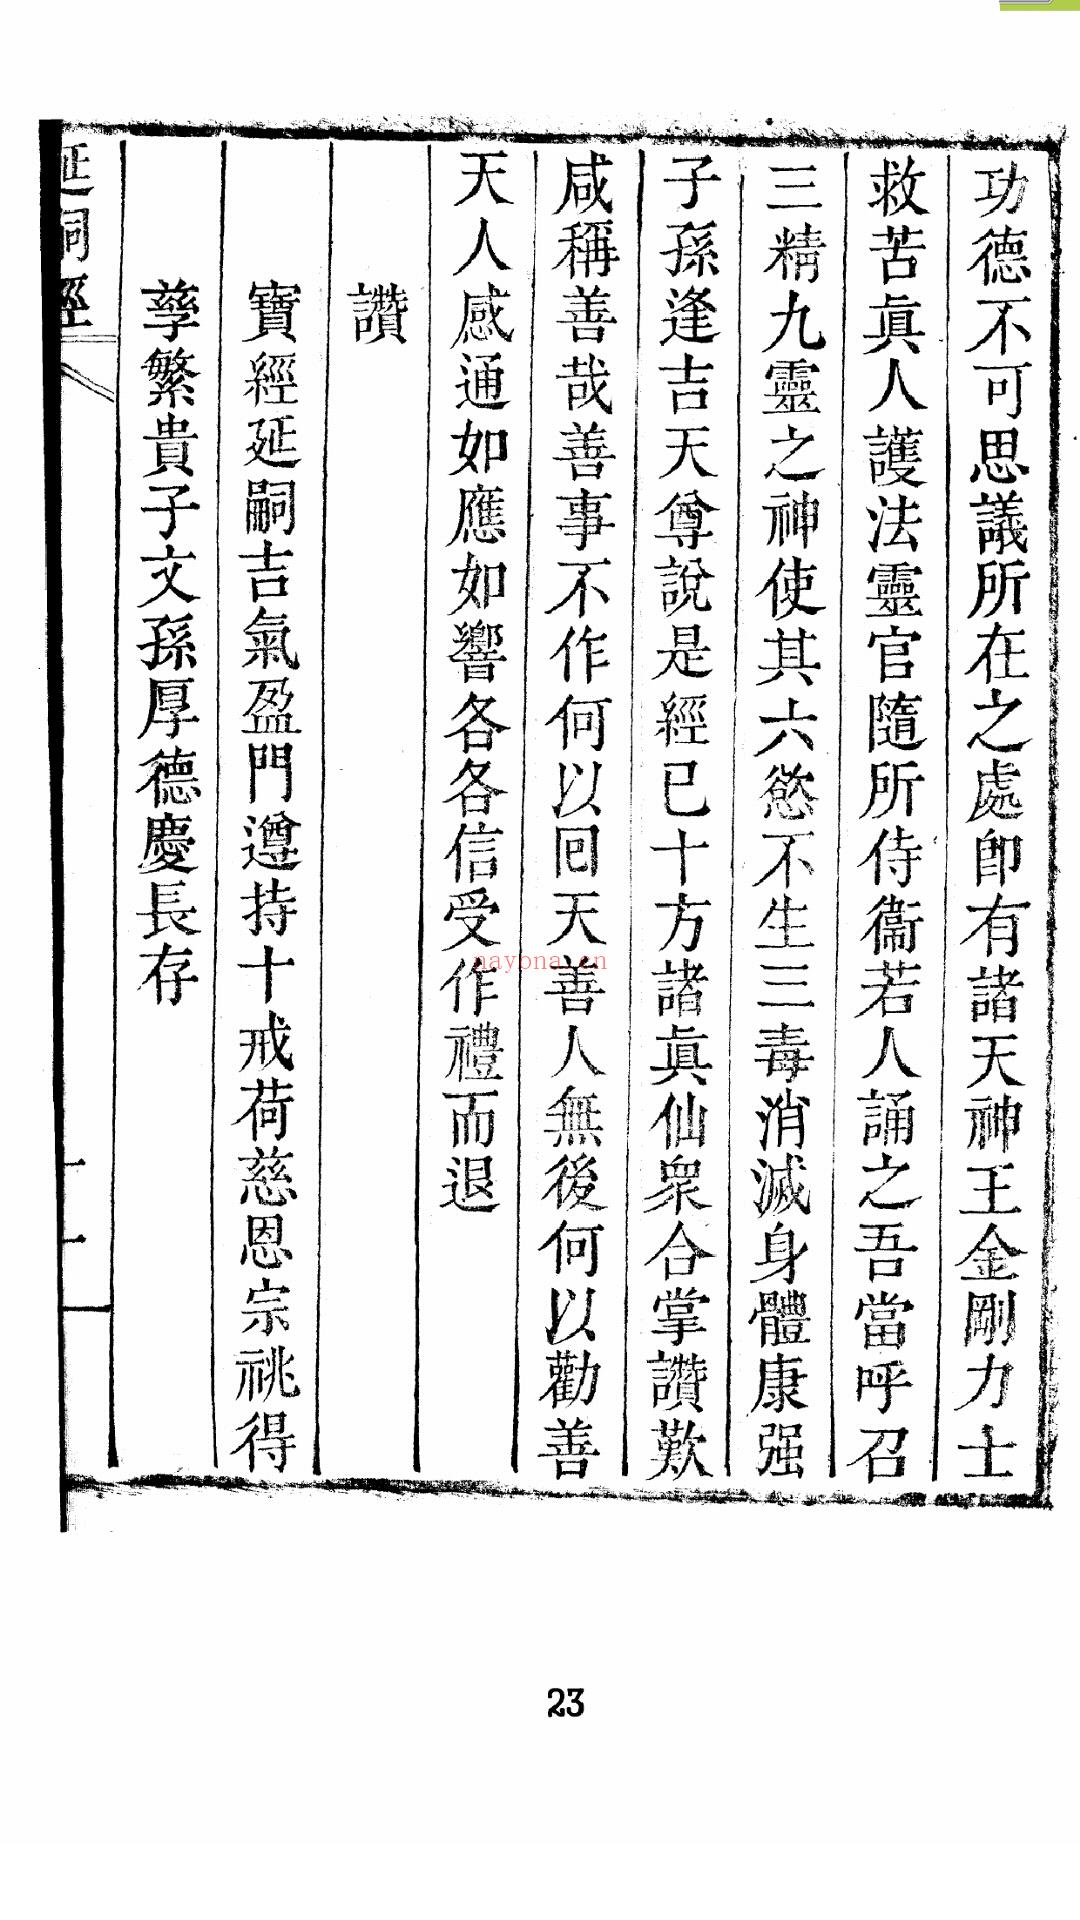 功德不可思議所在之處卽有諸天神王金剛力士
救苦眞人護法靈官隨所侍衞若人誦之吾當呼召
三精九靈之神使其六慾不生三毒消滅身體康强
子孫逢吉天尊說是經已十方諸眞仙衆合掌讚歎
咸稱善哉善事不作何以回天善人無後何以勸善
天人感通如應如響各各信受作禮而退
讚
寶經延嗣吉氣盈門遵持十戒荷慈恩宗祧得
孳繁貴子文孫厚德慶長存
延嗣經
十一
nayona.cn
23